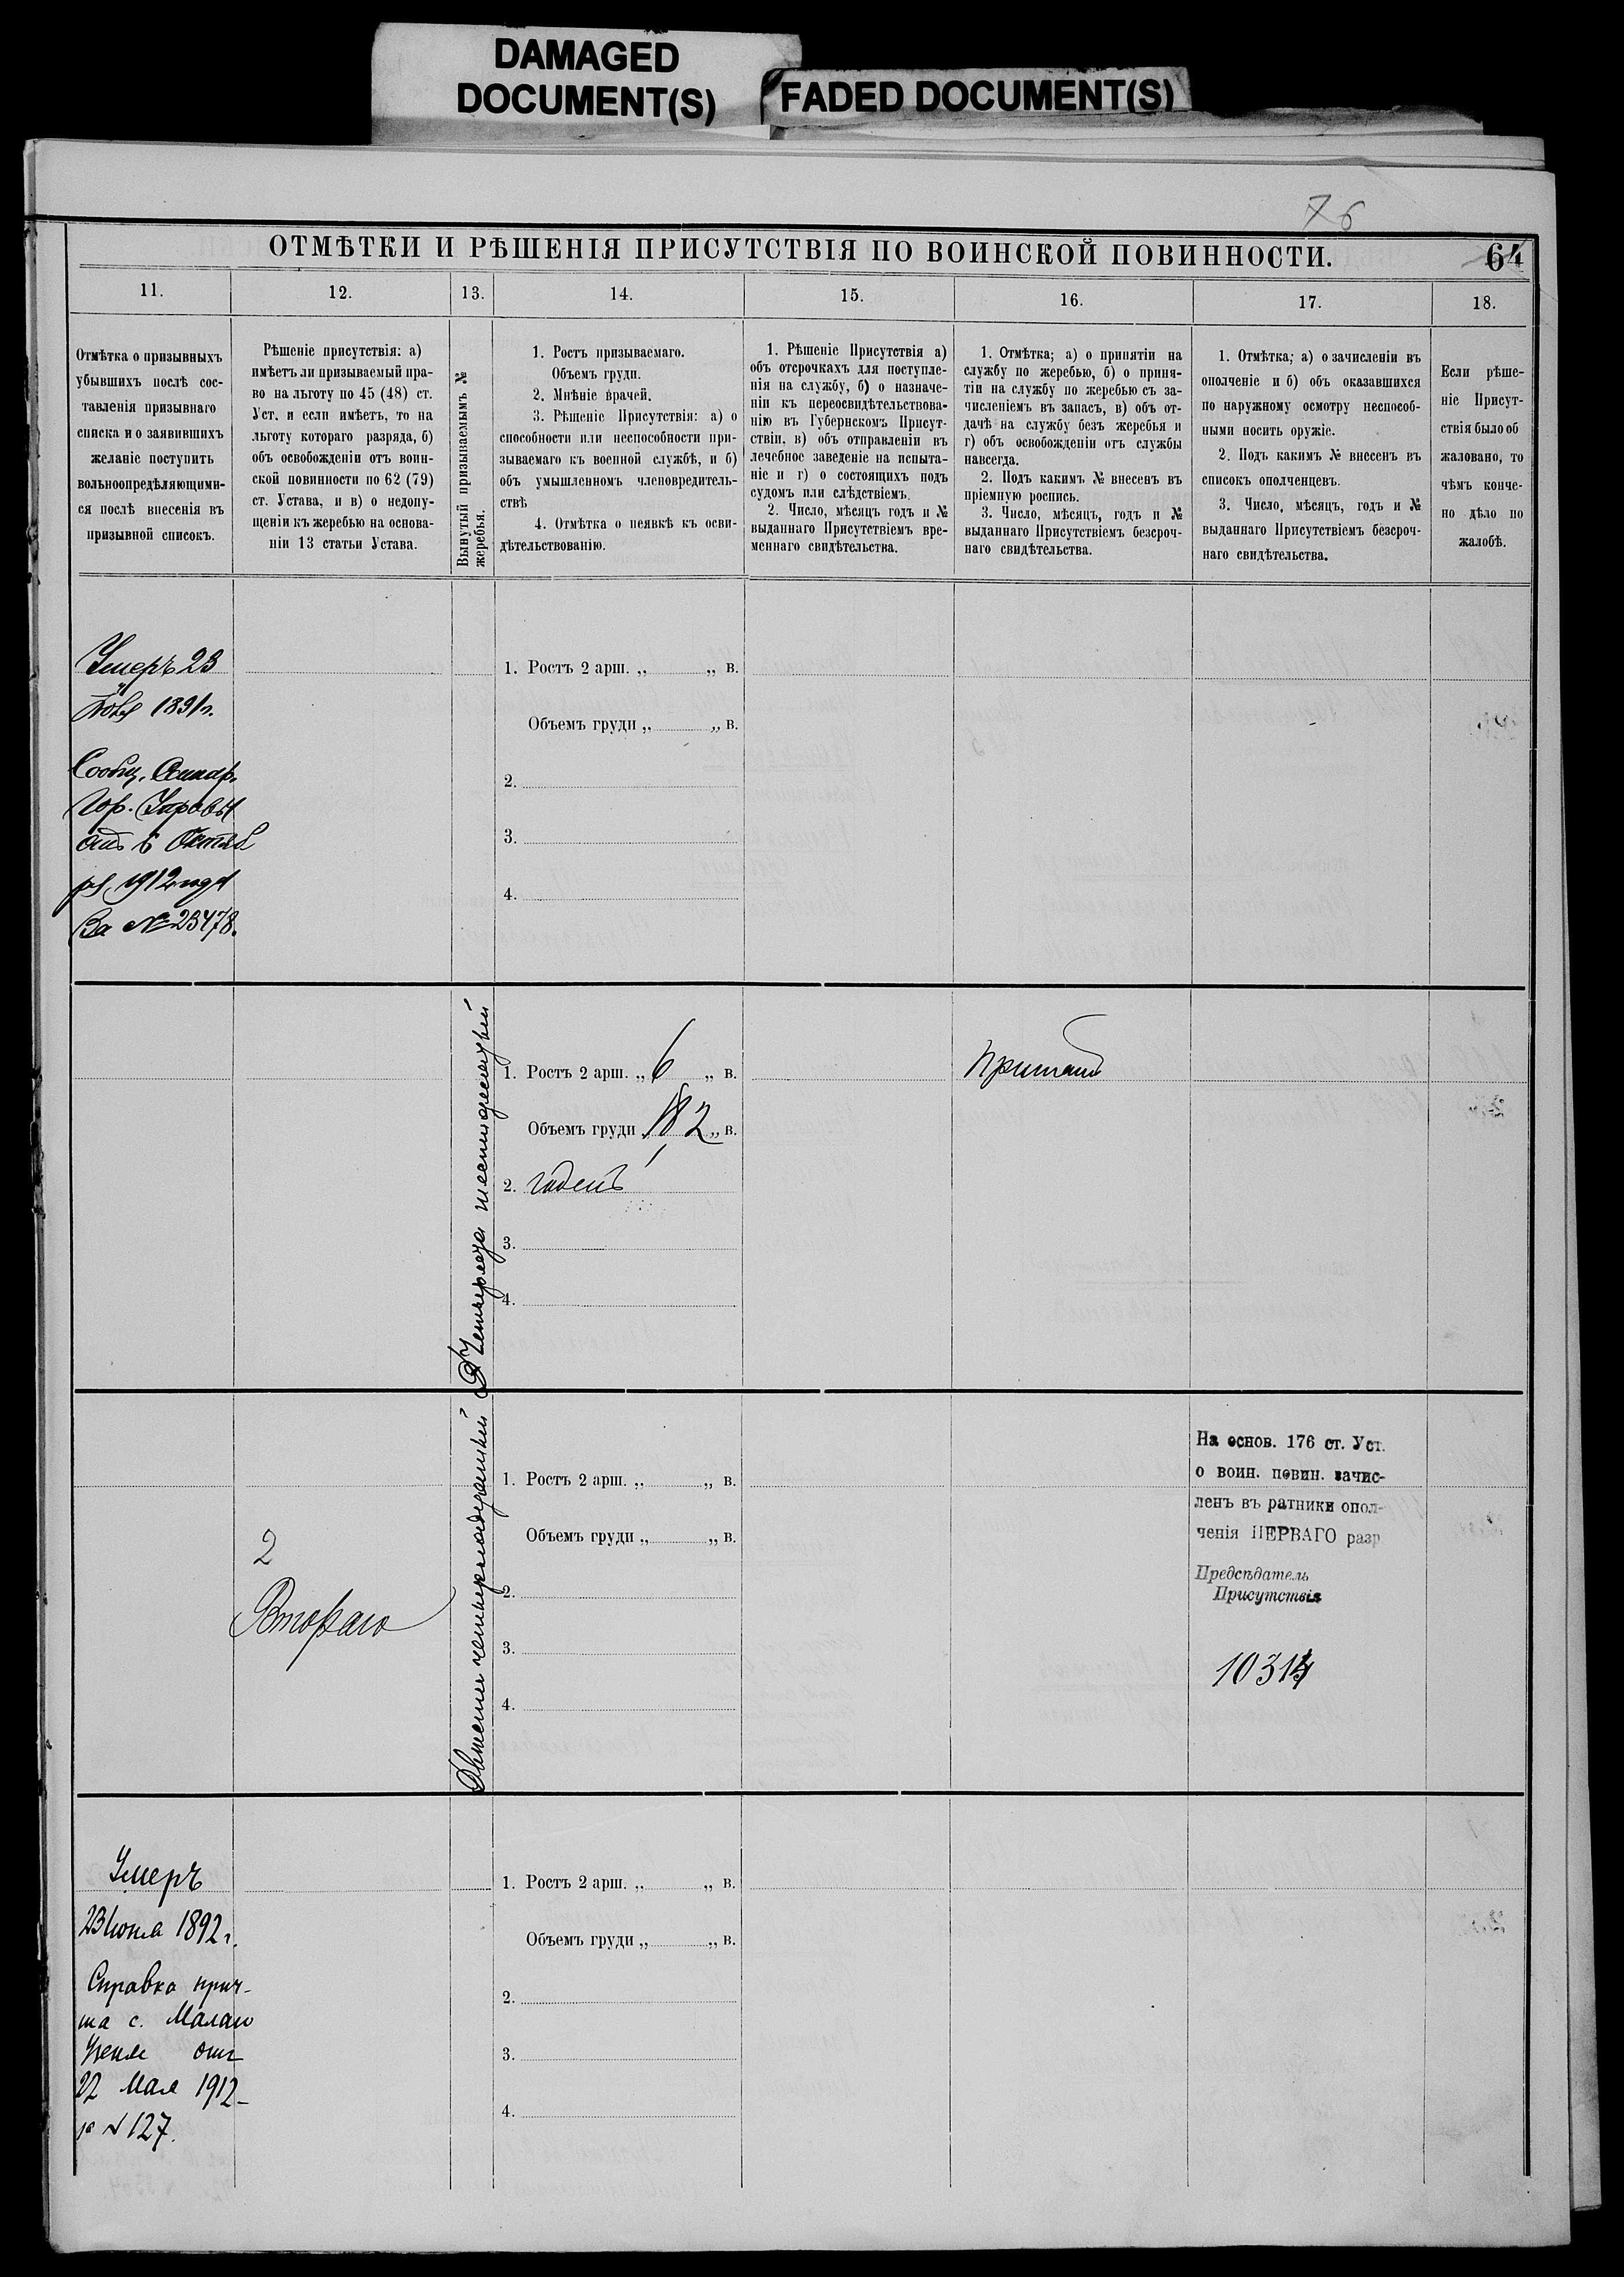 DAMAGED
DOCUMENT(S)
FADED DOCUMENT(S)
76
ОТМѢТКИ И РѢШЕНІЯ ПРИСУТСТВІЯ ПО ВОИНСКОЙ ПОВИННОСТИ.
64
11.
12.
13.
14.
15.
16.
17.
18.
Отмѣтка о призывныхъ
убывшихъ послѣ сос-
тавленія призывнаго
списка и о заявившихъ
желаніе поступить
вольноопредѣляющими-
ся послѣ внесенія въ
призывной списокъ.
Рѣшеніе присутствія: а)
имѣетъ ли призываемый пра-
во на льготу по 45 (48) ст.
Уст. и если имѣетъ, то на
льготу котораго разряда, б)
объ освобожденіи отъ воин-
ской повинности по 62 (79)
ст. Устава, и в) о недопу-
щеніи къ жеребью на основа-
ніи 13 статьи Устава.
Вынутый призываемымъ №
жеребья.
1. Ростъ призываемаго.
Объемъ груди.
2. Мнѣніе врачей.
3. Рѣшеніе Присутствія: а) о
способности или неспособности при-
зываемаго къ военной службѣ, и б)
объ умышленномъ членовредитель-
ствѣ
4. Отмѣтка о неявкѣ къ осви-
дѣтельствованію.
1. Рѣшеніе Присутствія а)
объ отсрочкахъ для поступле-
нія на службу, б) о назначе-
ніи къ переосвидѣтельствова-
нію въ Губернскомъ Присут-
ствіи, в) объ отправленіи въ
лечебное заведеніе на испыта-
ніе и г) о состоящихъ подъ
судомъ или слѣдствіемъ.
2. Число, мѣсяцъ годъ и №
выданнаго Присутствіемъ вре-
меннаго свидѣтельства.
1. Отмѣтка; а) о принятіи на
службу по жеребью, б) о приня-
тіи на службу по жеребью съ за-
численіемъ въ запасъ, в) объ от-
дачѣ на службу безъ жеребья и
г) объ освобожденіи отъ службы
навсегда.
2. Подъ какимъ № внесенъ въ
пріемную роспись.
3. Число, мѣсяцъ, годъ и №
выданнаго Присутствіемъ безсроч-
наго свидѣтельства.
1. Отмѣтка; а) о зачисленіи въ
ополченіе и б) объ оказавшихся
по наружному осмотру неспособ-
ными носить оружіе.
2. Подъ какимъ № внесенъ въ
списокъ ополченцевъ.
3. Число, мѣсяцъ, годъ и №
выданнаго Присутствіемъ безсроч-
наго свидѣтельства.
Если рѣше-
ніе Присут-
ствія было об
жаловано, то
чѣмъ конче-
но дѣло по
жалобѣ.
Умеръ 23
1891 г.
Сообщ. Самар.
Гор. Управы
отъ 6 Октяб
ря 1912 года
За № 23478.
1. Ростъ 2 арш. „ „ в.
Объемъ груди „ „ в.
2.
3.
4.
Четыреста шестидесятый
1. Ростъ 2 арш. „ 6 „ в.
Объемъ груди 18,2 „ в.
2. годенъ
3.
4.
Принятъ
2
Втораго
Двѣсти четырнадцатый
1. Ростъ 2 арш. „ „ в.
Объемъ груди „ „ в.
2.
3.
4.
На основ. 176 ст. Уст.
о воин. повин. зачис-
ленъ въ ратники опол-
ченія ПЕРВАГО разр
Предсѣдатель
Присутствія
Умеръ
23 Іюля 1892 г.
Справка прич-
та с. Малаго
Узеня отъ
22 Мая 1912
№ 127.
1. Ростъ 2 арш. „ „ в.
Объемъ груди „ „ в.
2.
3.
4.